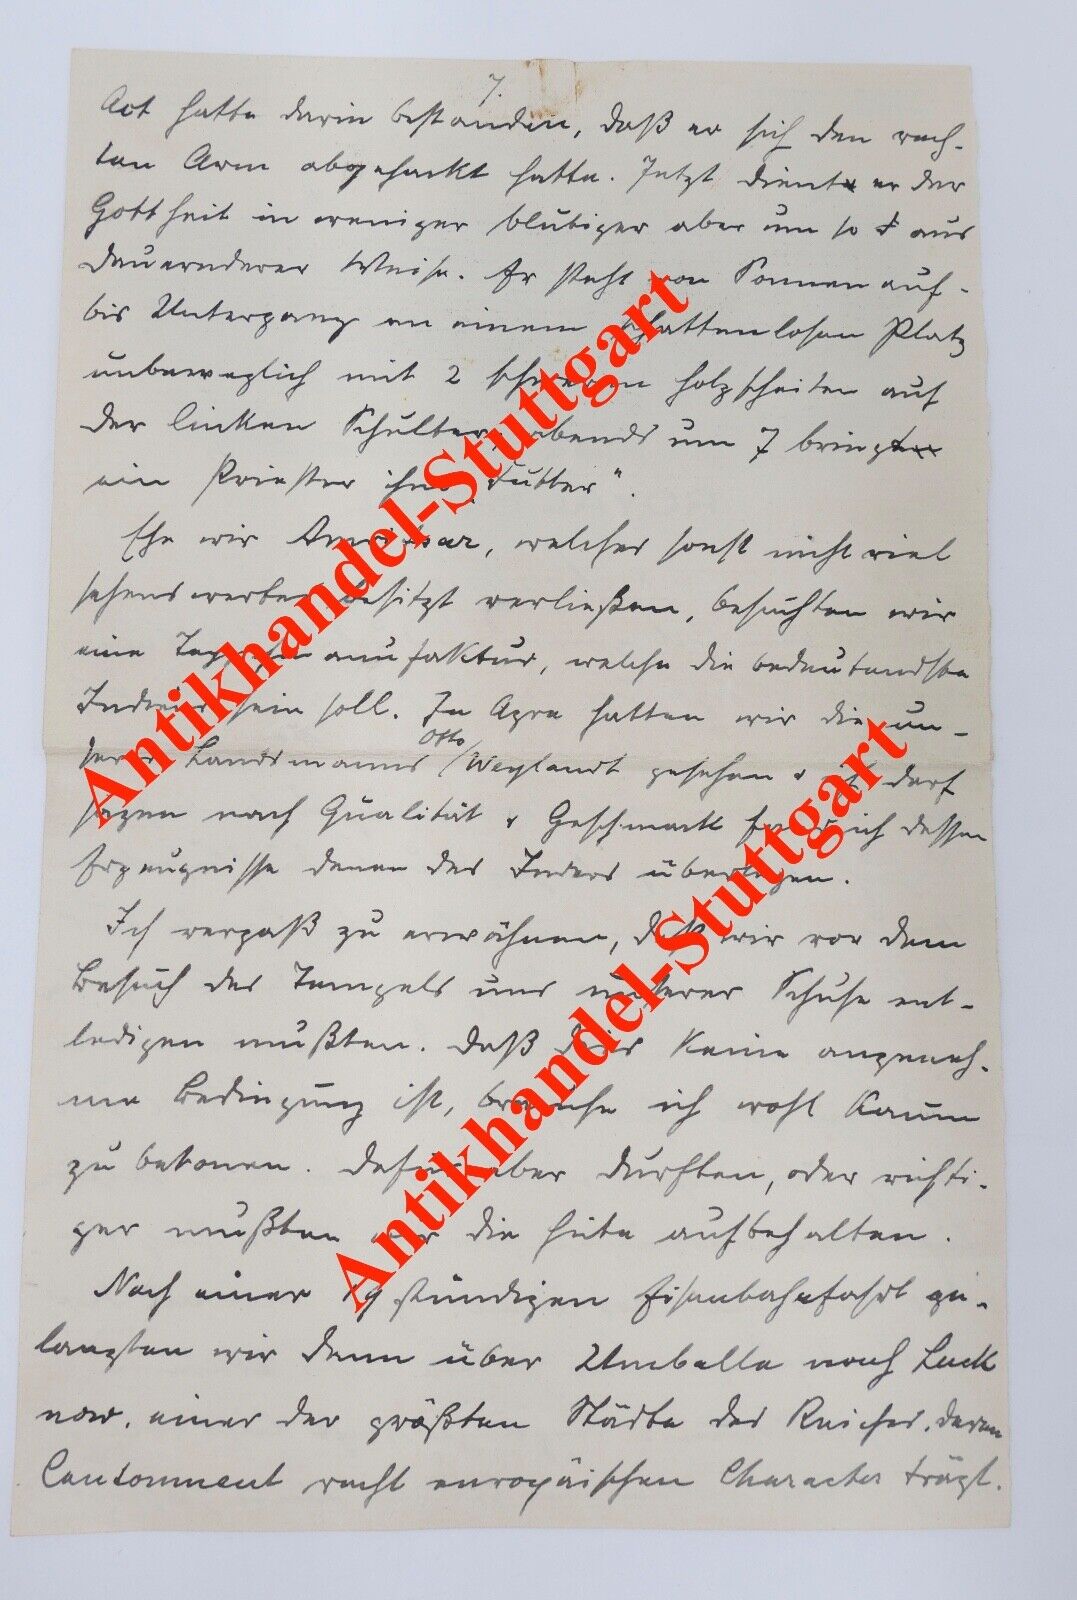 7.
Act hatte darin bestanden, daß er sich den rech-
ten Arm abgehackt hatte. Jetzt dient er der
Gottheit in weniger blutiger aber um so aus
dauernderer Weise. Er steht von Sonnenauf-
bis Untergang an einem schattenlosen Platz
unbeweglich mit 2 schweren Holzscheiten auf
der linken Schulter abends um 7 bringt
ein Priester ihm „Futter“.
Ehe wir Amritsar, welches sonst nicht viel
sehenswertes besitzt verließen, besuchten wir
eine Teppichmanufaktur, welche die bedeutendste
Indiens sein soll. In Agra hatten wir die un-
seres Landsmanns Otto Weylandt gesehen & darf
sagen nach Qualität & Geschmack fand ich dessen
Erzeugnisse denen des Inders überlegen.
Ich vergaß zu erwähnen, daß wir vor dem
Besuch des Tempels uns unserer Schuhe ent-
ledigen mußten. Daß dies keine angeneh-
me Bedingung ist, brauche ich wohl kaum
zu betonen. Dafür aber durften, oder richti-
ger mußten wir die Hüte aufbehalten.
Nach einer 19 stündigen Eisenbahnfahrt ge-
langten wir dann über Umballa nach Luck
now, einer der größten Städte des Reiches, deren
Cantonment recht europäischen Character trägt.
Antikhandel-Stuttgart
Antikhandel-Stuttgart